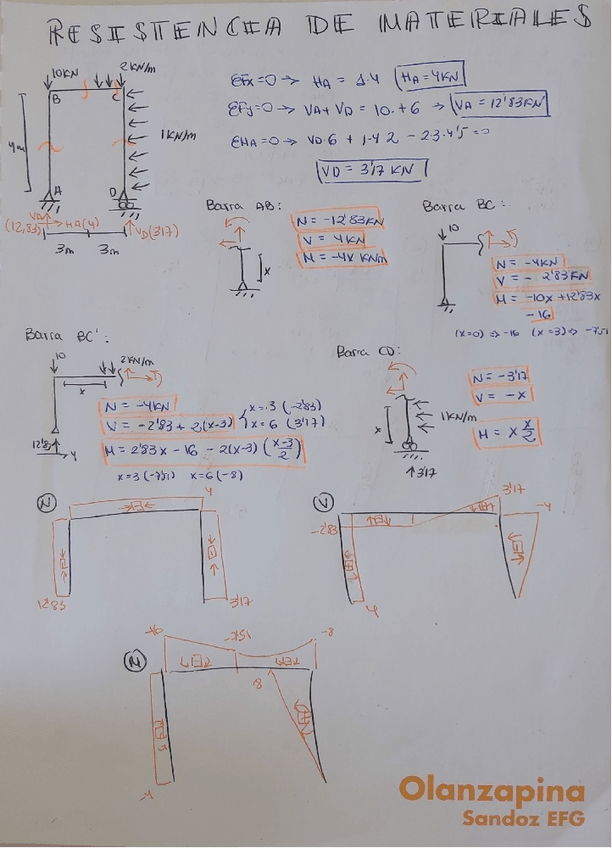 RESISTENCIA DE MATERIALES
10KN
2KN/m
B
C
4m
1KN/m
A
D
VA (12,83)
HA(4)
VD(3'17)
3m
3m
ΣFx=0 → HA = 1·4
HA=4KN
ΣFy=0 → VA+VD = 10+6 →
VA = 12'83KN
ΣMA=0 → VD·6 + 1·4·2 - 2·3·4'5 =0
VD = 3'17 KN
Barra AB:
x
N = -12'83KN
V = 4KN
M = -4x KNm
Barra BC:
10
N = -4KN
V = -2'83KN
M = -10x +12'83x
-16
(x=0) => -16 (x=3) => -7'51
Barra BC':
10
2KN/m
x
12'83
4
N = -4KN
V = -2'83 + 2(x-3)
x=3 (-2'83)
x=6 (3'17)
M = 2'83x - 16 - 2(x-3) (x-3/2)
x=3 (-7'51) x=6 (-8)
Barra CD:
x
1KN/m
3'17
N = -3'17
V = -x
M = x x/2
N
4
12'83
3'17
V
-2'83
3'17
-4
4
-7'51
-8
8
-4
Olanzapina
Sandoz EFG